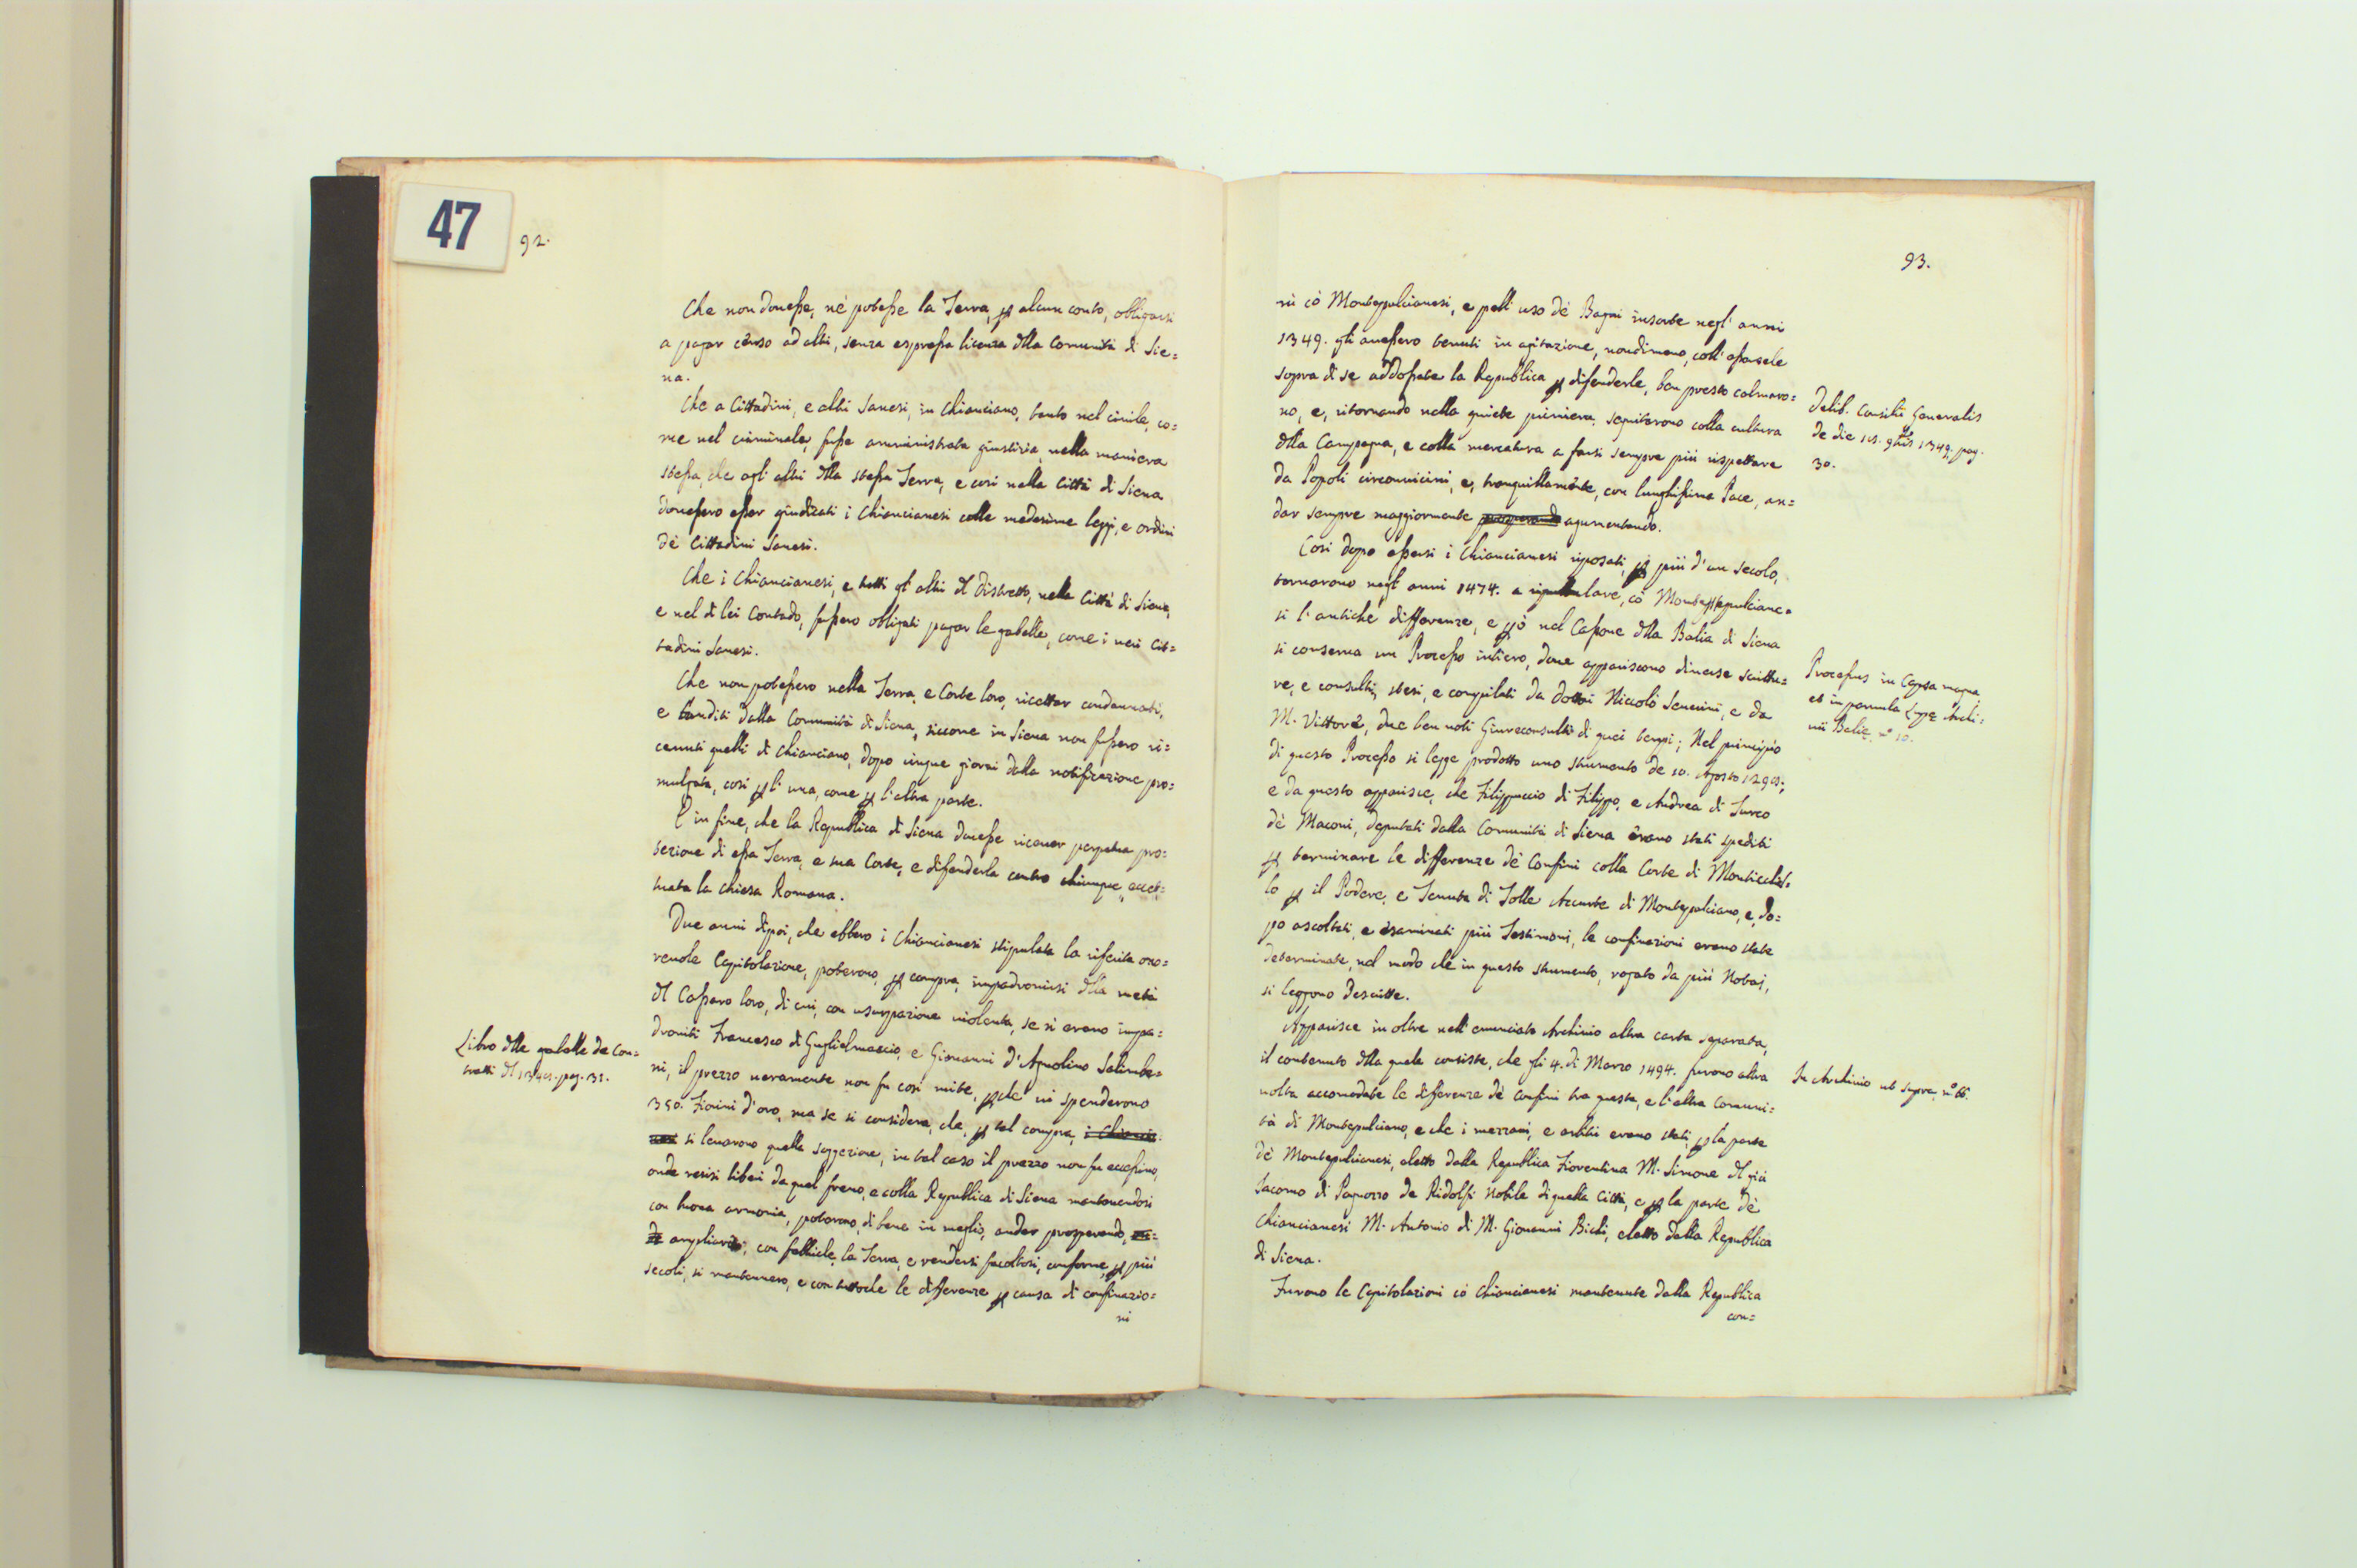 47
92.
Che non douesse, nè potesse la Terra, p alcun conto, obligarsi
a pagar censo ad altri, senza espressa licenza dlla Comunità di Sie=
na.
Che a Cittadini, e altri Sanesi, in Chianciano, tanto nel ciuile, co=
me nel criminale, fusse amministrata giustizia, nella maniera
stessa, che agl' altri dlla stessa Terra, e così nella Città di Siena
douessero esser giudicati i Chiancianesi colle medesime leggi, e ordini
dè Cittadini Sanesi.
Che i Chiancianesi, e tutti gl' altri dl Distretto, nella Città di Siena,
e nel di lei Contado, fussero obligati pagar le gabelle, come i ueri Cit=
tadini Sanesi.
Che non potessero nella Terra, e Corte loro, ricettar condannati,
e banditi dalla Comunità di Siena, siccome in Siena non fussero ri=
ceuuti quelli di Chianciano, dopo cinque giorni dalla notificazione pro=
mulgata, così p l' una, come p l' altra parte.
E in fine, che la Republica di Siena douesse riceuer perpetua pro=
tezione di essa Terra, e sua Corte, e difenderla contro chiunque, eccet=
tuata la Chiesa Romana.
Due anni dipoi, che ebbero i Chiancianesi stipulata la riferita ono=
reuole Capitolazione, poterono, p compra, impadronirsi dlla metà
dl Cassero loro, di cui, con usurpazione uiolenta, se n' erano impa=
droniti Francesco di Guglielmaccio, e Giouanni d' Agnolino Salimbe=
ni, il prezzo ueramente non fu così mite, pche ui spenderono
350. Fiorini d' oro, ma se si considera, che, p tal compra, i Chiancia=
nesi si leuarono quella suggezione, in tal caso il prezzo non fu eccessiuo,
onde resisi liberi da quel freno, e colla Republica di Siena mantenendosi
con buona armonia, poterono, di bene in meglio, andar prosperando,
ampliarsi, con fabbriche, la Terra, e rendersi facoltosi, conforme, p più
secoli, si mantennero, e con tuttoche le differenze p causa di confinazio=
ni
Libro dlle gabelle de Con=
tratti dl pag. 31.
93.
ni cò Montepulcianesi, e pell' uso dè Bagni insorte negl' anni
1349. gli auessero tenuti in agitazione, nondimeno, coll' essersele
sopra di se addossate la Republica p difenderle, ben presto calmaro=
no, e, ritornando nella quiete primiera, seguitarono colla cultura
dlla Campagna, e colla mercatura a farsi sempre più rispettare
da Popoli circonuicini, e, tranquillamente, con lunghissima Pace, an=
dar sempre maggiormente prosperando agumentando.
Così dopo essersi i Chiancianesi riposati, p più d' un secolo,
tornarono negl' anni 1474. a ripullulare, cò Montepulciane=
si l' antiche differenze, e pciò nel Cassone dlla Balìa di Siena
si conserua un Processo intiero, doue appariscono diuerse scrittu=
re, e consulti, stesi, e compilati da dottori Niccolò Seuerini, e da
M. Vittorio, due ben noti Giureconsulti di quei tempi; Nel principio
di questo Processo si legge prodotto uno strumento de 10. Agosto
e da questo apparisce, che Filippuccio di Filippo, e Andrea di Turco
dè Maconi, deputati dalla Comunità di Siena erano stati spediti
p terminare le differenze dè Confini colla Corte di Monticchiel=
lo p il Podere, e Tenuta di Tolle Accurte di Montepulciano, e, do=
po ascoltati, e esaminati più Testimoni, le confinazioni erano state
determinate, nel modo che in questo strumento, rogato da più Notai,
si leggono descritte.
Apparisce in oltre nell' enunciato Archiuio altra carta separata,
il contenuto dlla quale consiste, che gli 4. di Marzo 1494. furono altra
uolta accomodate le differenze dè confini tra questa, e l' altra Comuni=
tà di Montepulciano, e che i mezzani, e arbitri erano stati, p la parte
dè Montepulcianesi, eletto dalla Republica Fiorentina M. Simone dl già
Jacomo di Pagnozzo de Ridolfi nobile di quella Città, e p la parte dè
Chiancianesi M. Antonio di M. Giouanni Bichi, eletto dalla Republica
di Siena.
Furono le Capitolazioni cò Chiancianesi mantenute dalla Republica
con=
Delib. Consilii Generalis
de die 9bris 1349. pag.
30.
Processus in Capsa magna
et in parnula Lupæ Archi=
uii Baliæ n.° 10.
In Archiuio ut supra, n.° 66.